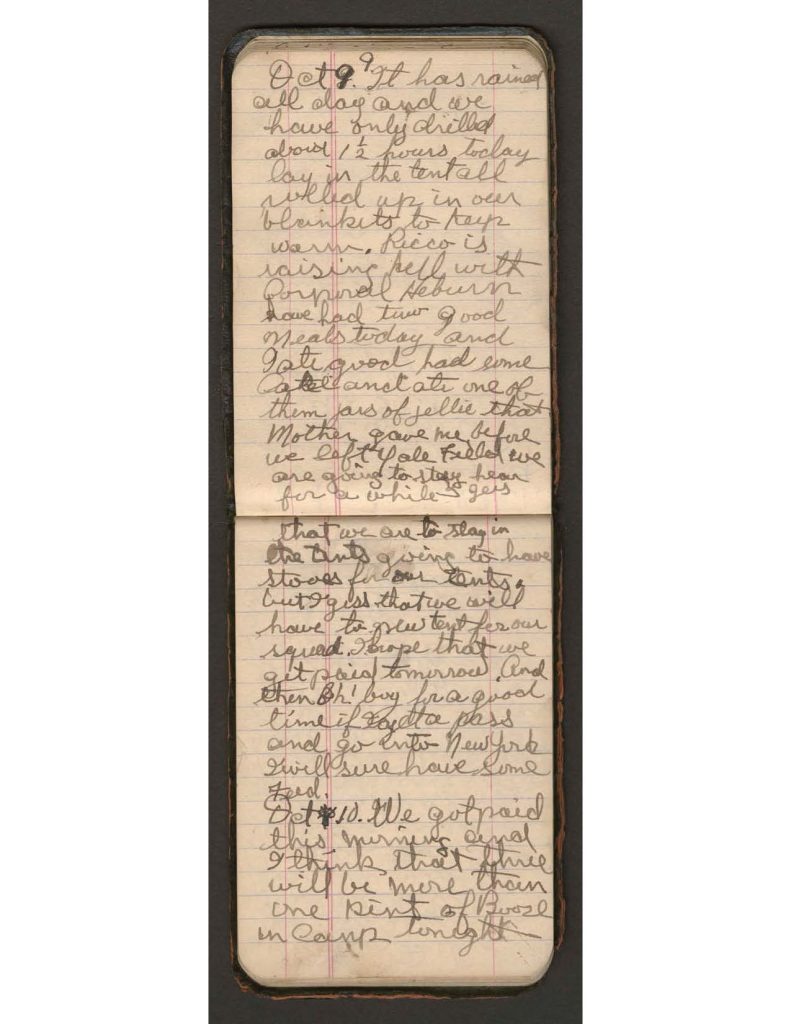 Oct 9. 9 It has rained
all day and we
have only drilled
about 1 1/2 hours today
lay in the tent all
rolled up in our
blankets to keep
warm. Ricco is
raising hell with
Corporal Heburn
have had two good
Meals today and
I ate good had some
and ate one of
them jars of jellie that
Mother gave me before
we left Yale Field we
are going to stay hear
for a while gess
that we are to stay in
the tents going to have
stoves for our tents.
but I gess that we will
have to new tent for our
squad. I hope that we
get paid tomorrow. And
then Oh! boy for a good
time if I get a pass
and go into New York
I will sure have some
Feed.
Oct 10. We got paid
this morning and
I think that three
will be more than
one pint of Booze
in Camp tonight